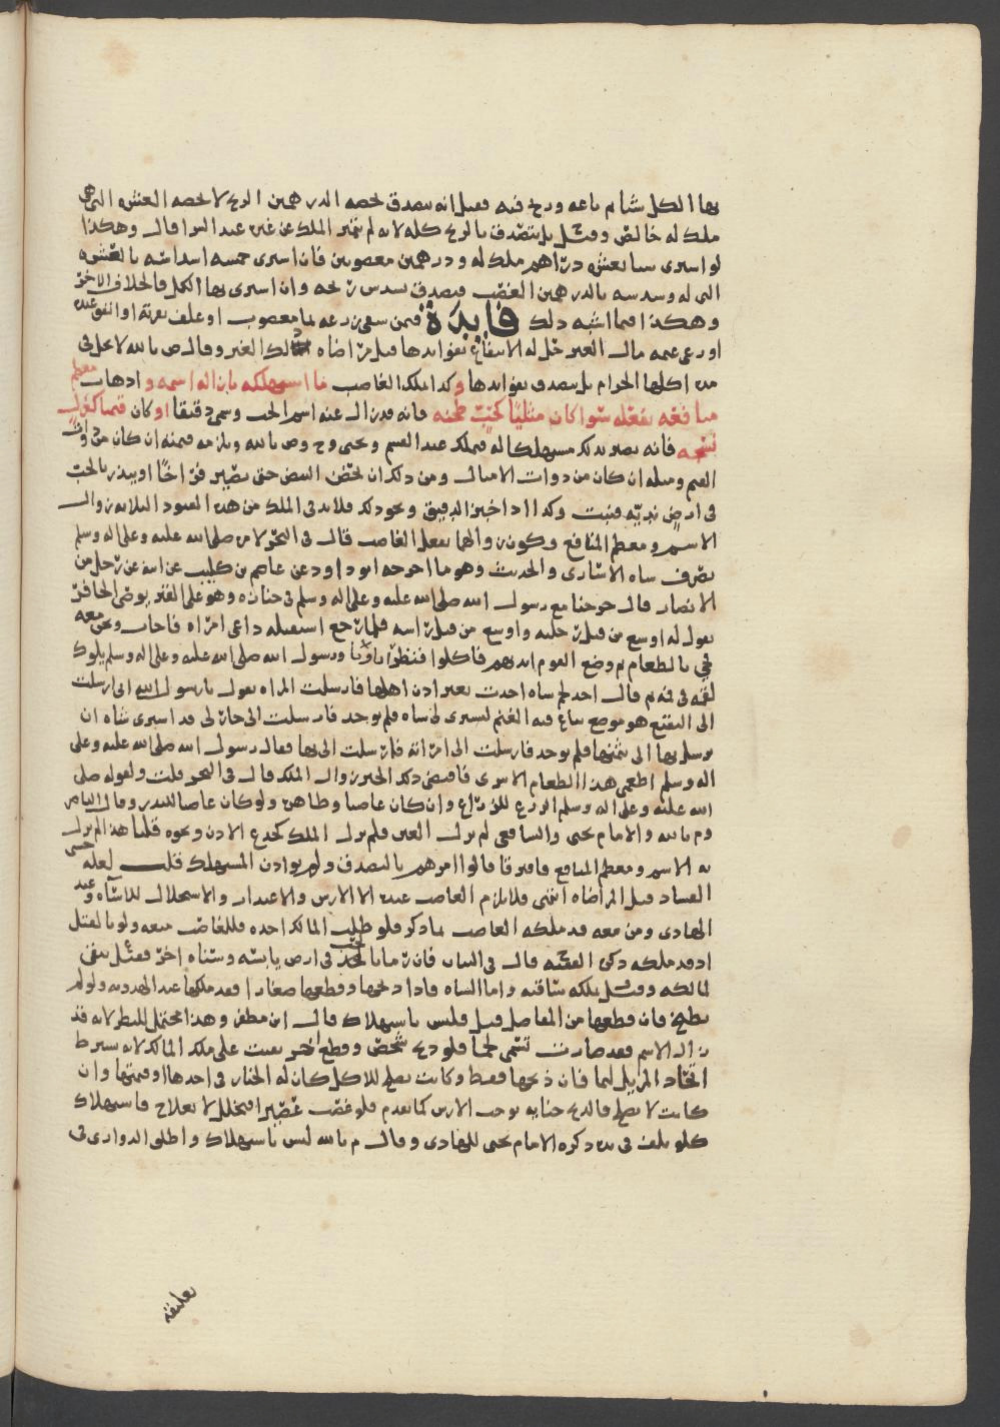 بها الكل شيا ثم باعه وربح فيه فقيل انه يتصدق بحصه الدرهمين الربح لا بحصه العشره التي هي
ملك له خالص وقيل بل يتصدق بالربح كله لانه لم يتميز الملك عن غيره عند الشرا قال وهكذا
لو اشترى شيا بعشره دراهم ملك له ودرهمين مغصوبين فان اشترى خمسه اسداسه بالعشره
التي له وسدسه بالدرهمين الغصب فيتصدق بسدس ربحه وان اشترى بها الكل فالخلاف الاخر
وهكذا فيما اشبه ذلك فايدة فمن سقى زرعه بما مغصوب او علف بقرته او انفق عبده
او رعى غنمه مال الغير حل له الانتفاع بفوايدها قبل مراضاه ذلك الغير وقال ص بالله لا يحل في
مده اكلها الحرام بل يتصدق بفوايدها وكذا يملك الغاصب ما استهلكه بازاله اسمه و اذهاب معظم
منافعه بفعله سوا كان مثليا كحب طحنه فانه قد زال عنه اسم الحب وسمي دقيقا او كان قيميا كثوب
فانه يصير بذلك مستهلكا له فيملكه عند القسم ويحيى وح وص بالله ويلزمه قيمته ان كان من ذوات
القيم ومثله ان كان من ذوات الامثال ومن ذلك ان يحضن البيض حتى يصير فراخا او يبذر بالحب
في ارض نديه فينبت وكذا اذا خبز الدقيق ونحو ذلك فلا بد في الملك من هذه القيود الثلاثه زوال
الاسم ومعظم المنافع وكون زوالهما بفعل الغاصب قال في البحر لامره صلى الله عليه وعلى اله وسلم
بصرف شاه الاسارى والحديث وهو ما اخرجه ابو داود عن عاصم بن كليب عن ابيه عن رجل من
الانصار قال خرجنا مع رسول الله صلى الله عليه وعلى اله وسلم في جنازه وهو على القبر يوصي الحافر
يقول له اوسع من قبل رجليه واوسع من قبل راسه فلما رجع استقبله داعي امراه فاجاب ونحن معه
فجي بالطعام ثم وضع القوم ايديهم فاكلوا فنظر اباونا ورسول الله صلى الله عليه وعلى اله وسلم يلوك
لقمه في فيه ثم قال اجد لحم شاه اخذت بغير اذن اهلها فارسلت المراه تقول يا رسول الله اني ارسلت
الى النقيع هو موضع يباع فيه الغنم ليشترى لي شاه فلم يوجد فارسلت الى جار لي قد اشترى شاه ان
يرسل بها الي بثمنها فلم يوجد فارسلت الى امراته فارسلت الي بها فقال رسول الله صلى الله عليه وعلى
اله وسلم اطعمي هذا الطعام الاسرى فاقتضى ذلك الخبر زوال الملك قال في البحر قلت ولقوله صلى
الله عليه وعلى اله وسلم الزرع للزراع وان كان غاصبا وظاهره ولو كان غاصبا للبذر وقال الناصر
وم بالله والامام يحيى والشافعي لم يزل العين فلم يزل الملك كجدع الاذن ونحوه قلنا هذا لم يزل
به الاسم ومعظم المنافع فافترقا قالوا امرهم بالتصدق ولم يوادن المستهلك قلت لعله خشي
الفساد قبل المراضاه انتهى فلا يلزم الغاصب عنده الا الارش والاعتذار والاستحلال للاساه وعند
الهادي ومن معه قد ملكه الغاصب بما ذكر فلو طلب المالك اخذه فللغاصب منعه ولو بالقتل
اذ قد ملكه ذكره الفقيه قال في البيان فان رما بالحب في ارض يابسه وسناه اخر فقيل يبقى
لمالكه وقيل يملكه ساقيه واما الشاه فاذا ذبحها وقطعها صغارا فقد ملكها عند الهدويه ولو لم
يطبخ فان قطعها من المفاصل فقيل فليس باستهلاك قال ابن مظفر وهذا محتمل للنظر لانه قد
زال الاسم فقد صارت تسمى لحما فلو ذبح شخص وقطع اخر بقيت على ملك المالك لانه يشترط
اتحاد المزيل لهما فان ذبحها فقط وكانت تصلح للاكل كان له الخيار في اخذها او قيمتها وان
كانت لا تصلح فالذبح جنايه يوجب الارش كما تقدم فلو غصب عصيرا فتخلل لا بعلاج فاستهلاك
كلو تلف في يده ذكره الامام يحيى للهادي وقال م بالله ليس باستهلاك واطلق الدواري في
تعليقه